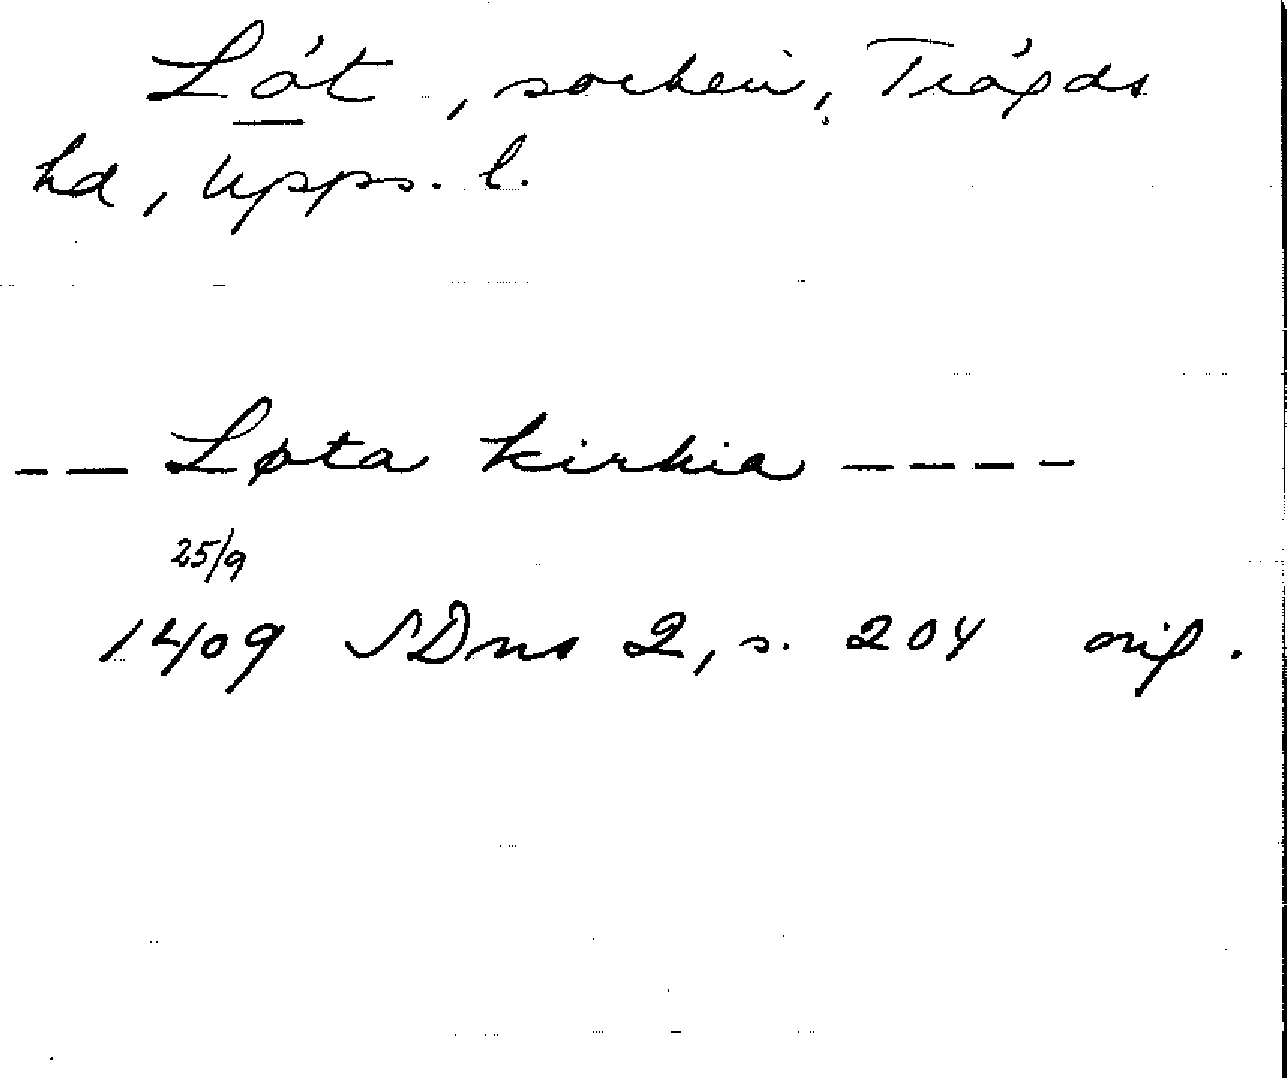 Löt, socken, Trögds
hd, Upps. l.
-- Løta kirkia ----
25/9
1409 SDns 2, s. 204 orig.